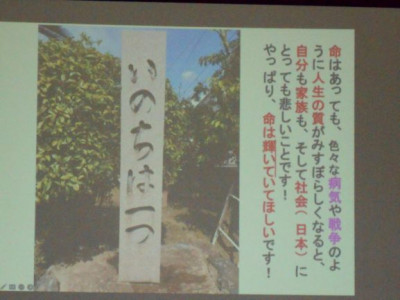 命はあっても、色々な病気や戦争のよ
うに人生の質がみすぼらしくなると、
自分も家族も、そして社会(日本)に
とっても悲しいことです!
やっぱり、命は輝いていてほしいです!
いのちは一つ